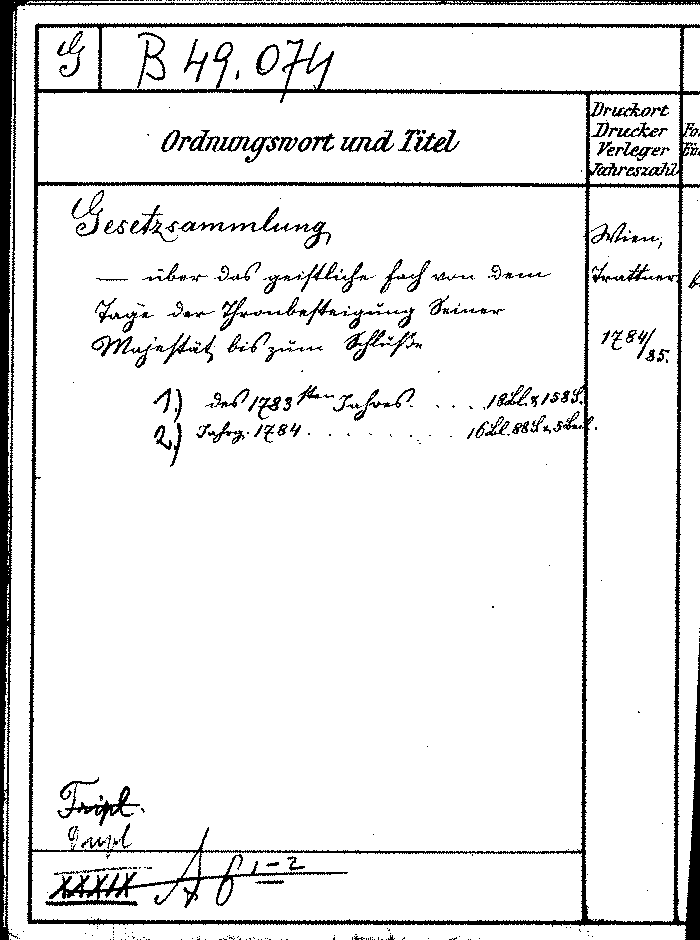 G B 49.074
Ordnungswort und Titel
Druckort
Drucker
Verleger
Jahreszahl
Gesetzsammlung
— über das geistliche Fach von dem
Tage der Thronbesteigung Seiner
Majestät bis zum Schluße
Wien,
Trattner
1784/
85.
1) des 1783sten Jahres. . . . 18Bl. & 158S.
2) Jahrg. 1784 . . . . . . . 16Bl. 88S. & 5Beil.
Tripl.
Dupl
XXXIX A 6 1-2